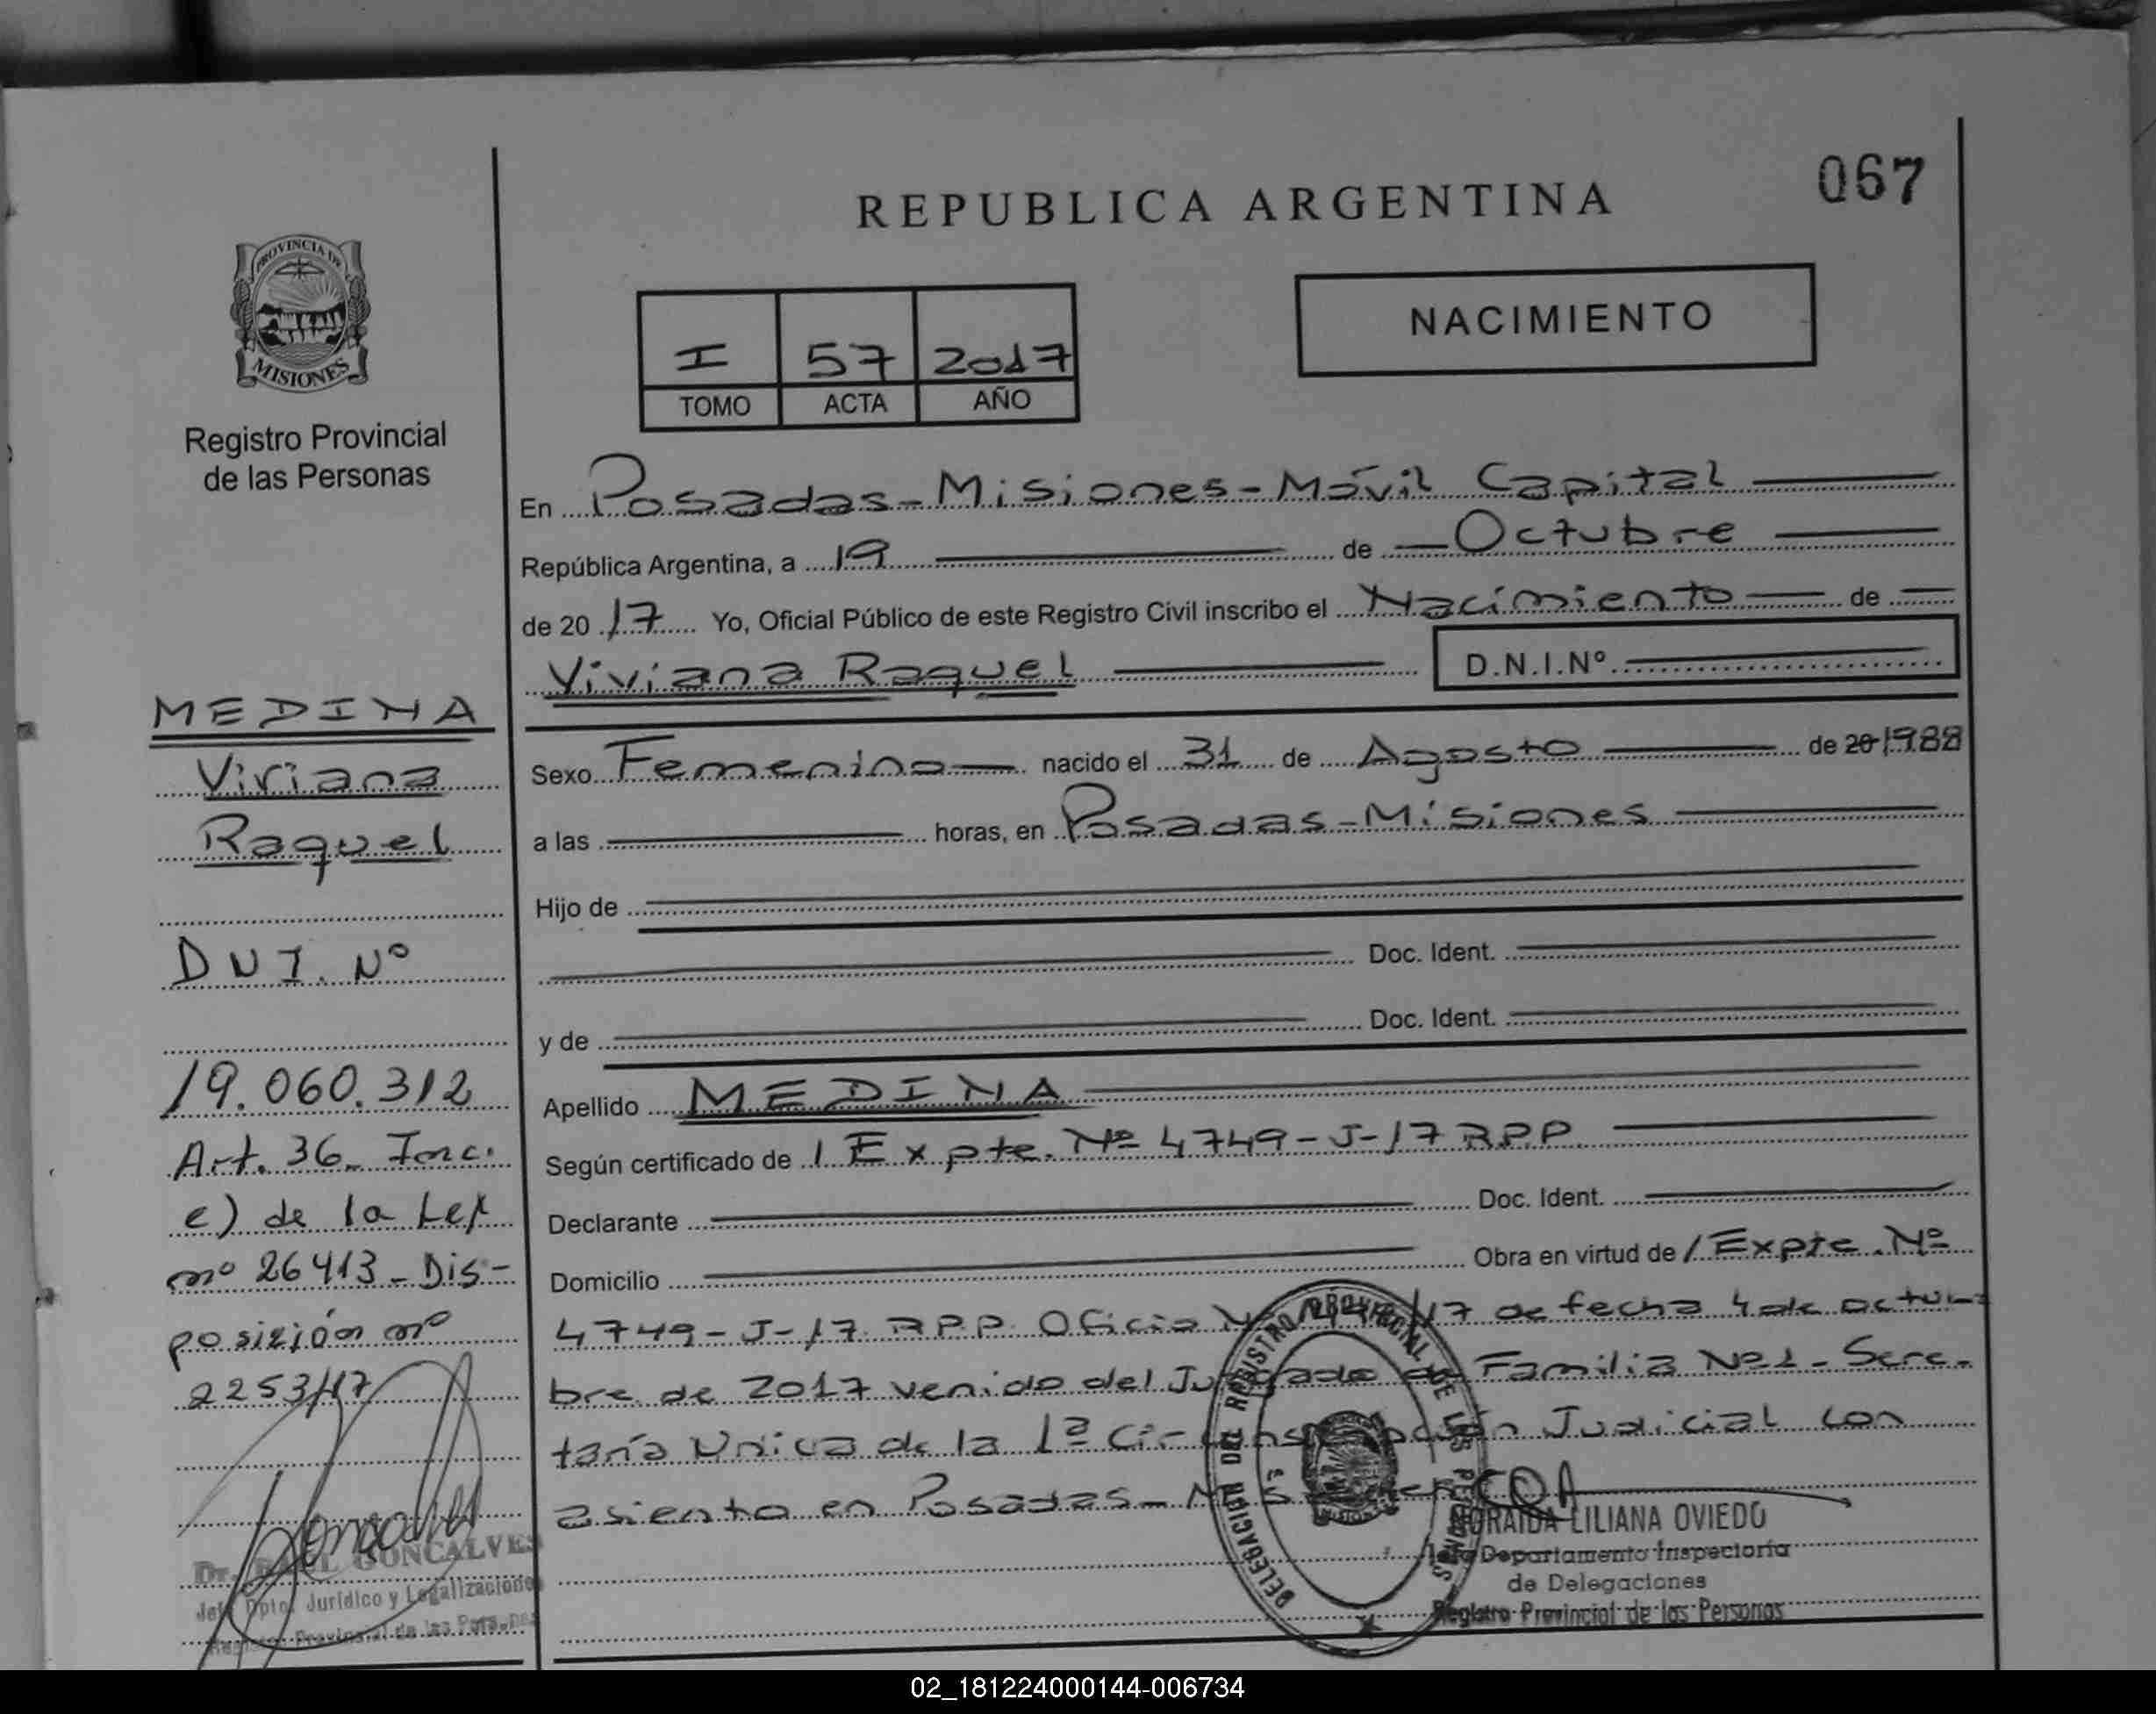 REPUBLICA ARGENTINA
067
PROVINCIA DE
MISIONES
Registro Provincial
de las Personas
I 57 2017
TOMO ACTA AÑO
NACIMIENTO
En Posadas - Misiones - Móvil Capital
República Argentina, a 19 de Octubre
de 20 17 Yo, Oficial Público de este Registro Civil inscribo el Nacimiento de
Viviana Raquel D.N.I.Nº
Sexo Femenino nacido el 31 de Agosto de 20 1988
a las horas, en Posadas - Misiones
Hijo de
Doc. Ident.
y de Doc. Ident.
Apellido MEDINA
Según certificado de / Expte. Nº 4749-J-17 R.P.P
Declarante Doc. Ident.
Domicilio Obra en virtud de / Expte. Nº
4749-J-17 R.P.P Oficio Nº /17 de fecha 4 de octu-
bre de 2017 venido del Juzgado de Familia Nº 1 - Secre-
taría Unica de la 1ª Circunscripción Judicial con
asiento en Posadas - Misiones
MEDINA
Viviana
Raquel
DNI. Nº
19.060.312
Art. 36 Inc.
e) de la Ley
nº 26413 - Dis-
posición nº
2253/17
Dr. GONCALVES
Jefe Dpto. Jurídico y Legalizaciones
Registro Provincial de las Personas
DELEGACION DEL REGISTRO PROVINCIAL DE LAS PERSONAS
NORAIDA LILIANA OVIEDO
Jefe Departamento Inspectoría
de Delegaciones
Registro Provincial de las Personas
02_181224000144-006734